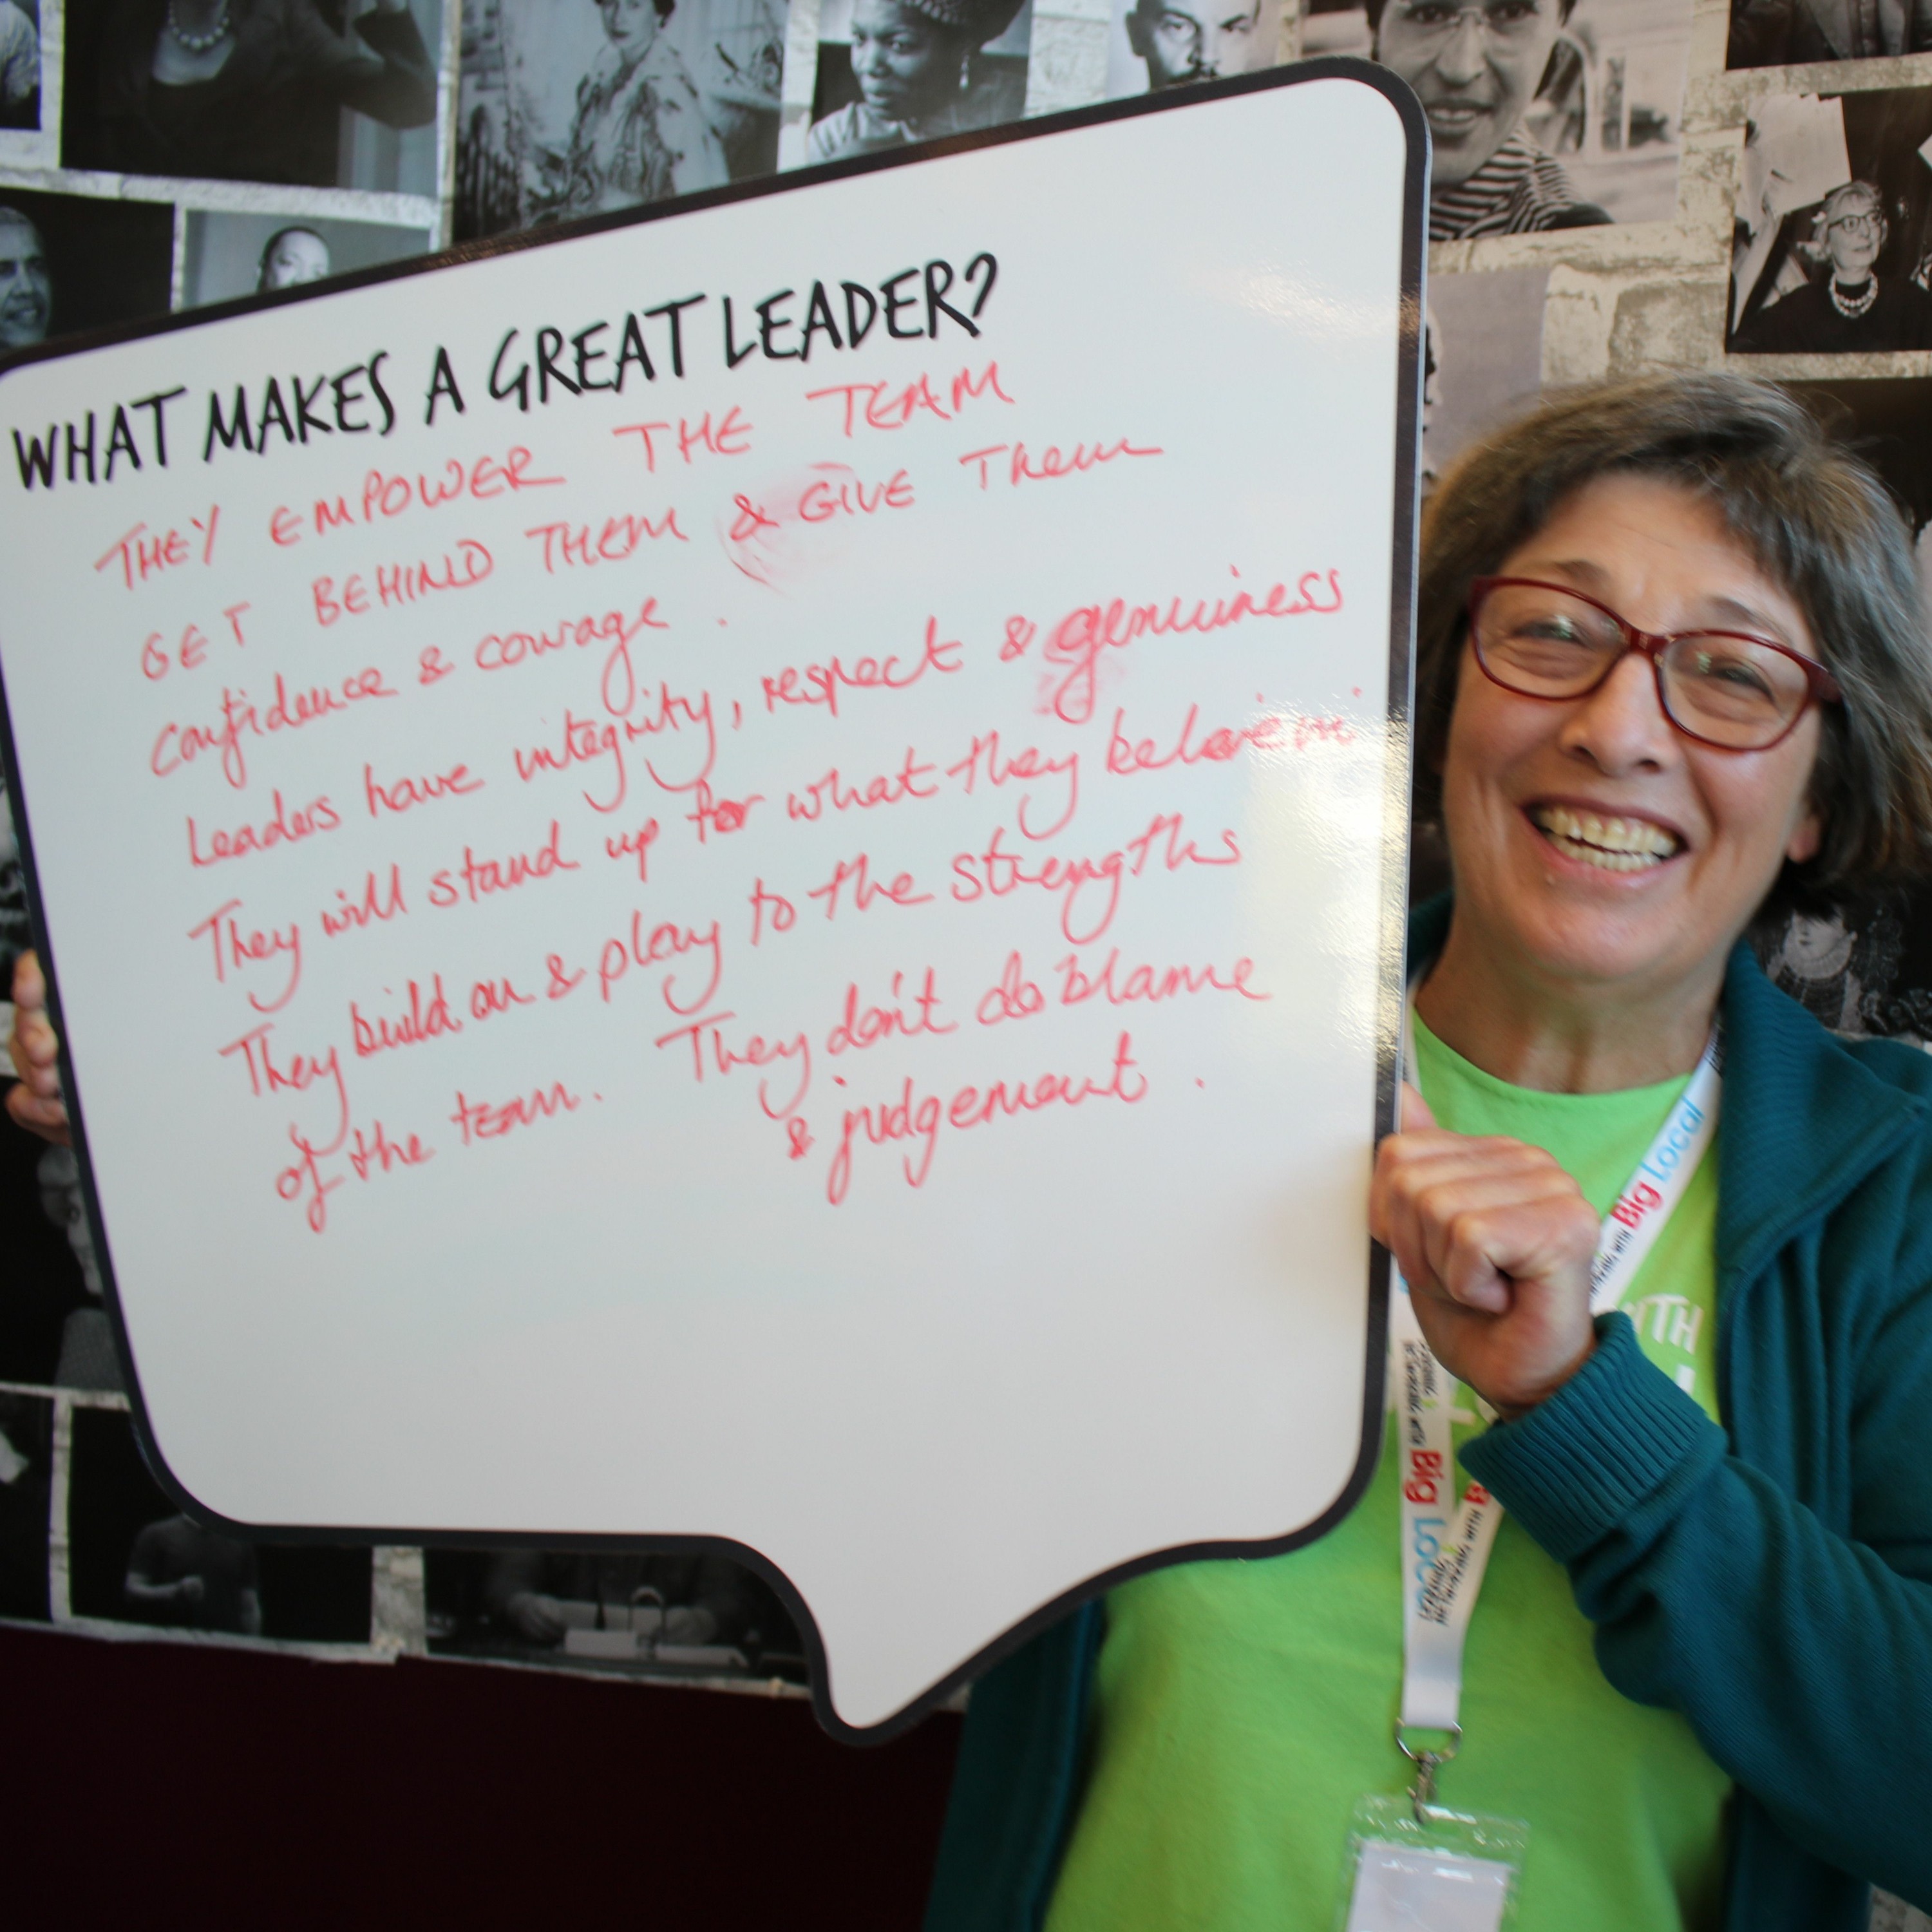 WHAT MAKES A GREAT LEADER?
THEY EMPOWER THE TEAM
GET BEHIND THEM & GIVE Them
confidence & courage.
Leaders have integrity, respect & genuiness
They will stand up for what they beleive in
They build on & play to the strengths
of the team. They don't do blame
& judgement.
Big Local
WITH
Big Local